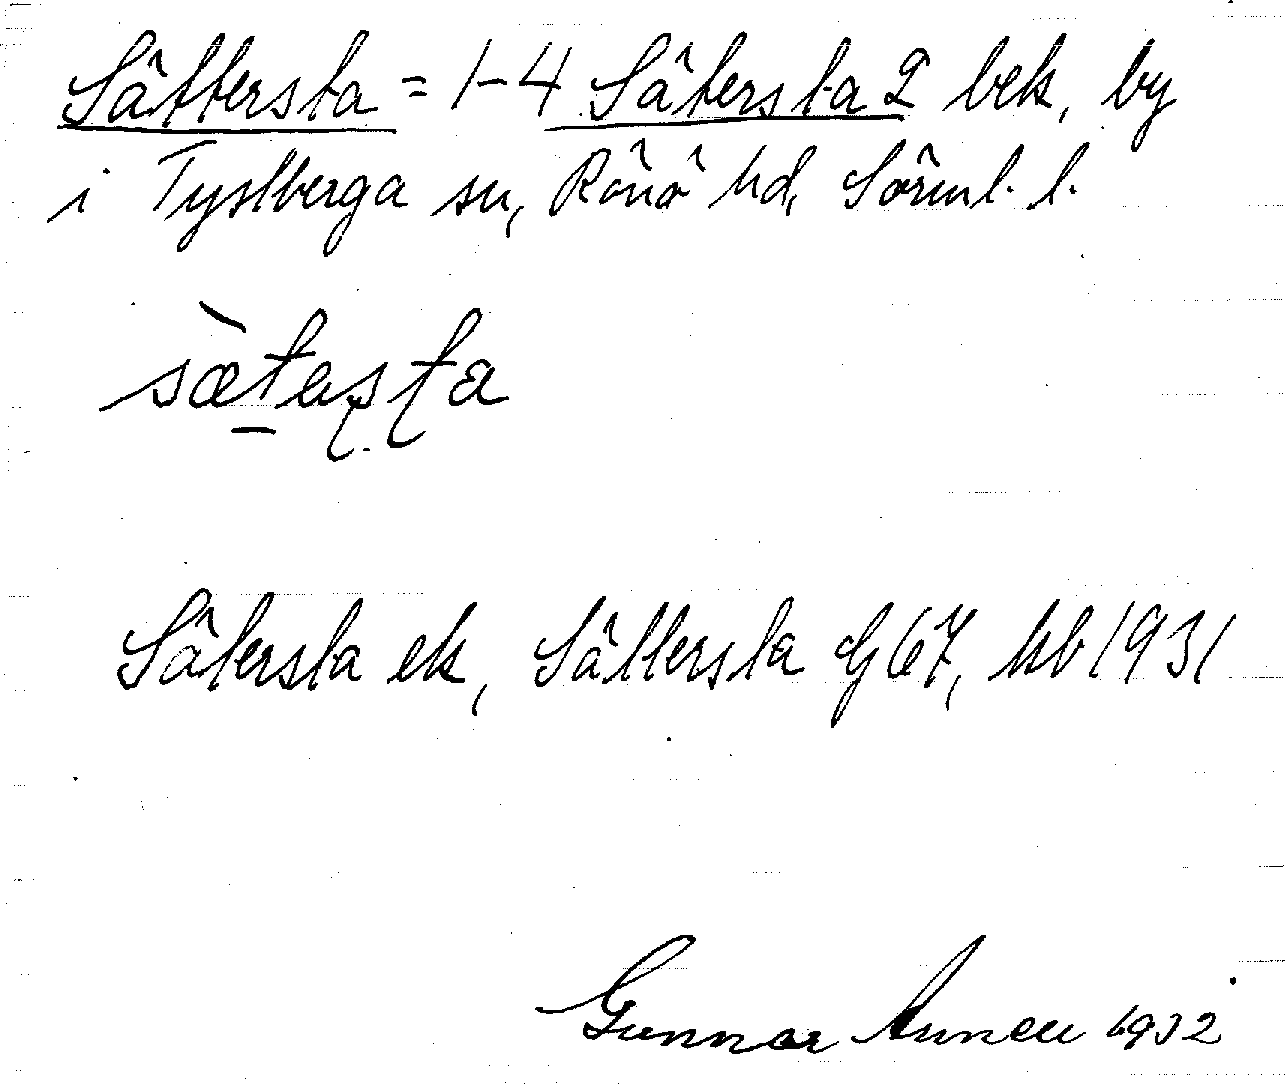 Sättersta = 1-4 Sätersta 2 bek. by
i Tystberga sn, Rönö hd, Sörml. l.
sæ̀taʂʈa
Sätersta ek, Sättersta GJ 67, hb 1931
Gunnar 1932